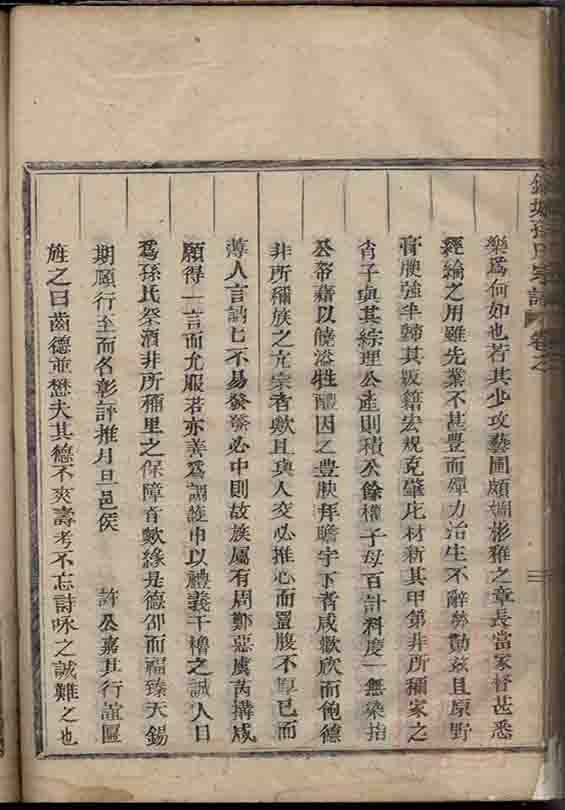 孫氏宗譜 卷之
樂爲何如也若其少攻藝圃頗嫺彬雅之章長當家督甚悉
經綸之用雖先業不甚豐而殫力治生不辭勞勩茲且原野
膏腴強半歸其版籍宏規克肇庀材新其甲第非所稱家之
肖子與其綜理公產則積公餘權子母百計料度一無染指
公帑藉以饒溢牲醴因之豐腆拜瞻宇下者咸歡欣而飽德
非所稱族之亢宗者歟且與人交必推心而置腹不厚己而
薄人言訥七不易發發必中則故族屬有周鄭惡虞芮搆咸
願得一言而允服若亦善爲調護巾以禮義干櫓之誠人曰
爲孫氏祭酒非所稱里之保障者歟緣是德邵而福臻天錫
期頤行至而名彰評推月旦邑侯 許公嘉其行誼匾
旌之曰齒德並懋夫其德不爽壽考不忘詩咏之誠難之也